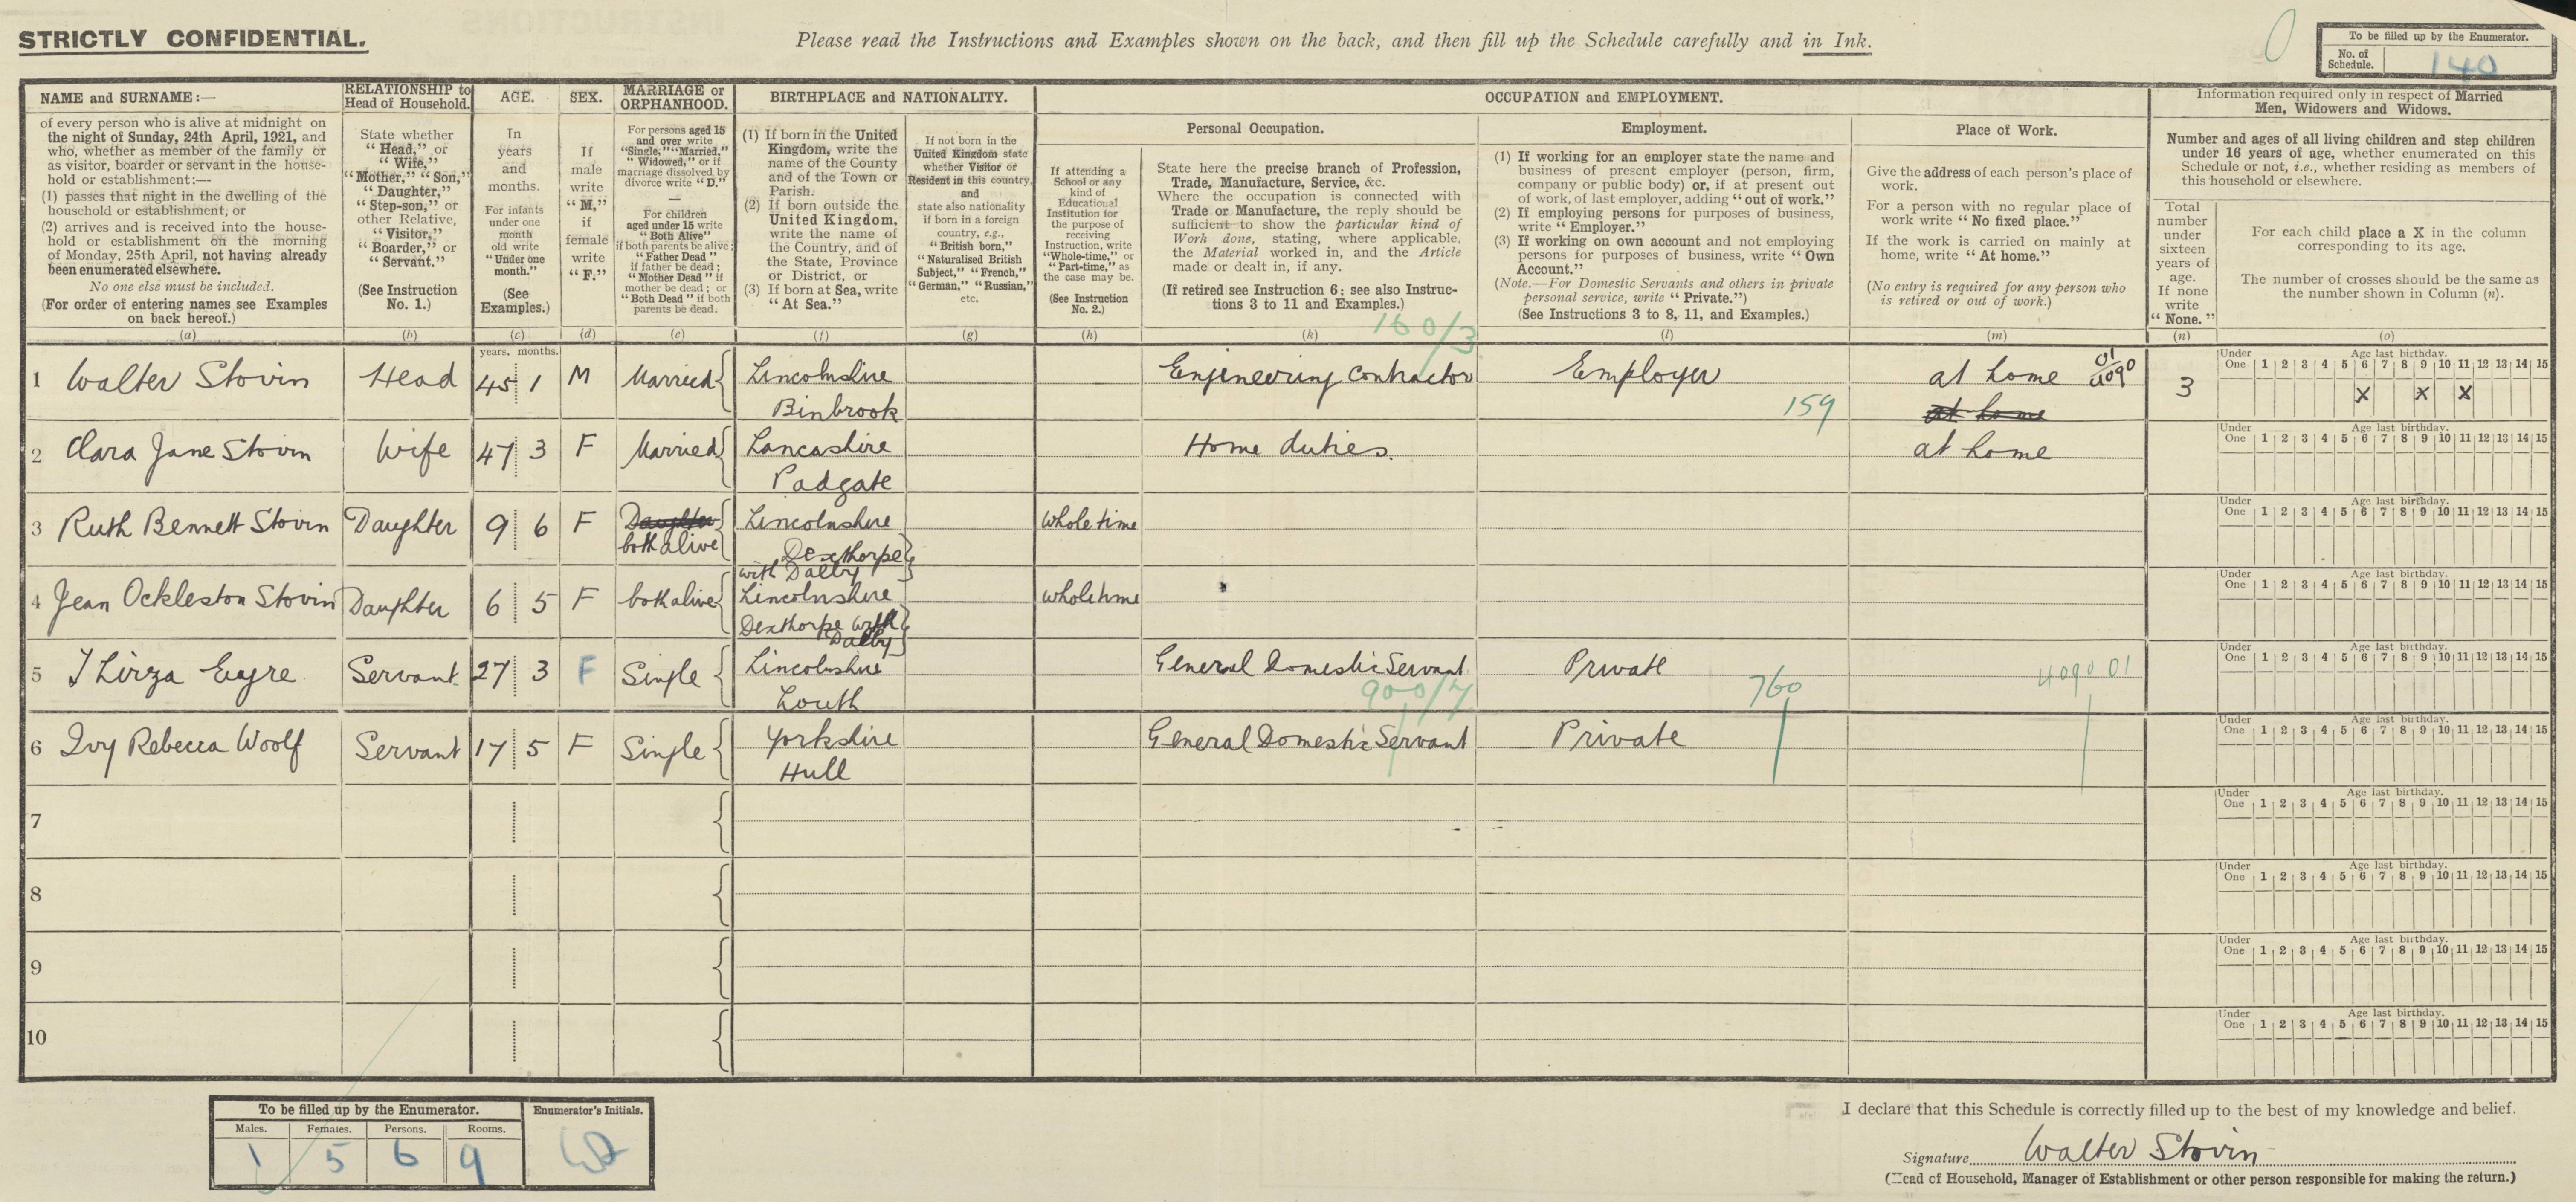 STRICTLY CONFIDENTIAL.
Please read the Instructions and Examples shown on the back, and then fill up the Schedule carefully and in Ink.
To be filled up by the Enumerator.
No. of Schedule. 140
NAME and SURNAME:—
of every person who is alive at midnight on
the night of Sunday, 24th April, 1921, and
who, whether as member of the family or
as visitor, boarder or servant in the house-
hold or establishment:—
(1) passes that night in the dwelling of the
household or establishment, or
(2) arrives and is received into the house-
hold or establishment on the morning
of Monday, 25th April, not having already
been enumerated elsewhere.
No one else must be included.
(For order of entering names see Examples
on back hereof.)
(a)
RELATIONSHIP to
Head of Household.
State whether
"Head," or
"Wife,"
"Mother," "Son,"
"Daughter,"
"Step-son," or
other Relative,
"Visitor,"
"Boarder," or
"Servant."
(See Instruction
No. 1.)
(b)
AGE.
In
years
and
months.
For infants
under one
month
old write
"Under one
month."
(See
Examples.)
(c)
years. months.
SEX.
If
male
write
"M,"
if
female
write
"F."
(d)
MARRIAGE or
ORPHANHOOD.
For persons aged 15
and over write
"Single," "Married,"
"Widowed," or if
marriage dissolved by
divorce write "D."
—
For children
aged under 15 write
"Both Alive"
if both parents be alive;
"Father Dead"
if father be dead;
"Mother Dead" if
mother be dead; or
"Both Dead" if both
parents be dead.
(e)
BIRTHPLACE and NATIONALITY.
(1) If born in the United
Kingdom, write the
name of the County
and of the Town or
Parish.
(2) If born outside the
United Kingdom,
write the name of
the Country, and of
the State, Province
or District, or
(3) If born at Sea, write
"At Sea."
(f)
If not born in the
United Kingdom state
whether Visitor or
Resident in this country,
and
state also nationality
if born in a foreign
country, e.g.,
"British born,"
"Naturalised British
Subject," "French,"
"German," "Russian,"
etc.
(g)
OCCUPATION and EMPLOYMENT.
If attending a
School or any
kind of
Educational
Institution for
the purpose of
receiving
Instruction, write
"Whole-time," or
"Part-time," as
the case may be.
(See Instruction
No. 2.)
(h)
Personal Occupation.
State here the precise branch of Profession,
Trade, Manufacture, Service, &c.
Where the occupation is connected with
Trade or Manufacture, the reply should be
sufficient to show the particular kind of
Work done, stating, where applicable,
the Material worked in, and the Article
made or dealt in, if any.
(If retired see Instruction 6; see also Instruc-
tions 3 to 11 and Examples.)
(k)
Employment.
(1) If working for an employer state the name and
business of present employer (person, firm,
company or public body) or, if at present out
of work, of last employer, adding "out of work."
(2) If employing persons for purposes of business,
write "Employer."
(3) If working on own account and not employing
persons for purposes of business, write "Own
Account."
(Note.—For Domestic Servants and others in private
personal service, write "Private.")
(See Instructions 3 to 8, 11, and Examples.)
(l)
Place of Work.
Give the address of each person's place of
work.
For a person with no regular place of
work write "No fixed place."
If the work is carried on mainly at
home, write "At home."
(No entry is required for any person who
is retired or out of work.)
(m)
Information required only in respect of Married
Men, Widowers and Widows.
Number and ages of all living children and step children
under 16 years of age, whether enumerated on this
Schedule or not, i.e., whether residing as members of
this household or elsewhere.
Total
number
under
sixteen
years of
age.
If none
write
"None."
(n)
For each child place a X in the column
corresponding to its age.
The number of crosses should be the same as
the number shown in Column (n).
(o)
160/3
Under One Age last birthday. 1 2 3 4 5 6 7 8 9 10 11 12 13 14 15
1 Walter Stovin Head 45 1 M Married Lincolnshire Engineering Contractor Employer at home 01/4090 3 x x x
Binbrook 159 at home
Under One Age last birthday. 1 2 3 4 5 6 7 8 9 10 11 12 13 14 15
2 Clara Jane Stovin Wife 47 3 F Married Lancashire Home duties. at home
Padgate
Under One Age last birthday. 1 2 3 4 5 6 7 8 9 10 11 12 13 14 15
3 Ruth Bennett Stovin Daughter 9 6 F Daughter Lincolnshire Whole time
both alive Dexthorpe
with Dalby
Under One Age last birthday. 1 2 3 4 5 6 7 8 9 10 11 12 13 14 15
4 Jean Ockleston Stovin Daughter 6 5 F both alive Lincolnshire whole time
Dexthorpe with
Dalby
Under One Age last birthday. 1 2 3 4 5 6 7 8 9 10 11 12 13 14 15
5 Thirza Eyre Servant 27 3 F Single Lincolnshire General Domestic Servant Private 4090 01
Louth 900/7 760
Under One Age last birthday. 1 2 3 4 5 6 7 8 9 10 11 12 13 14 15
6 Ivy Rebecca Woolf Servant 17 5 F Single Yorkshire General Domestic Servant Private
Hull
Under One Age last birthday. 1 2 3 4 5 6 7 8 9 10 11 12 13 14 15
7
Under One Age last birthday. 1 2 3 4 5 6 7 8 9 10 11 12 13 14 15
8
Under One Age last birthday. 1 2 3 4 5 6 7 8 9 10 11 12 13 14 15
9
Under One Age last birthday. 1 2 3 4 5 6 7 8 9 10 11 12 13 14 15
10
To be filled up by the Enumerator.
Males. Females. Persons. Rooms.
1 5 6 9
Enumerator's Initials.
I declare that this Schedule is correctly filled up to the best of my knowledge and belief.
Signature Walter Stovin
(Head of Household, Manager of Establishment or other person responsible for making the return.)